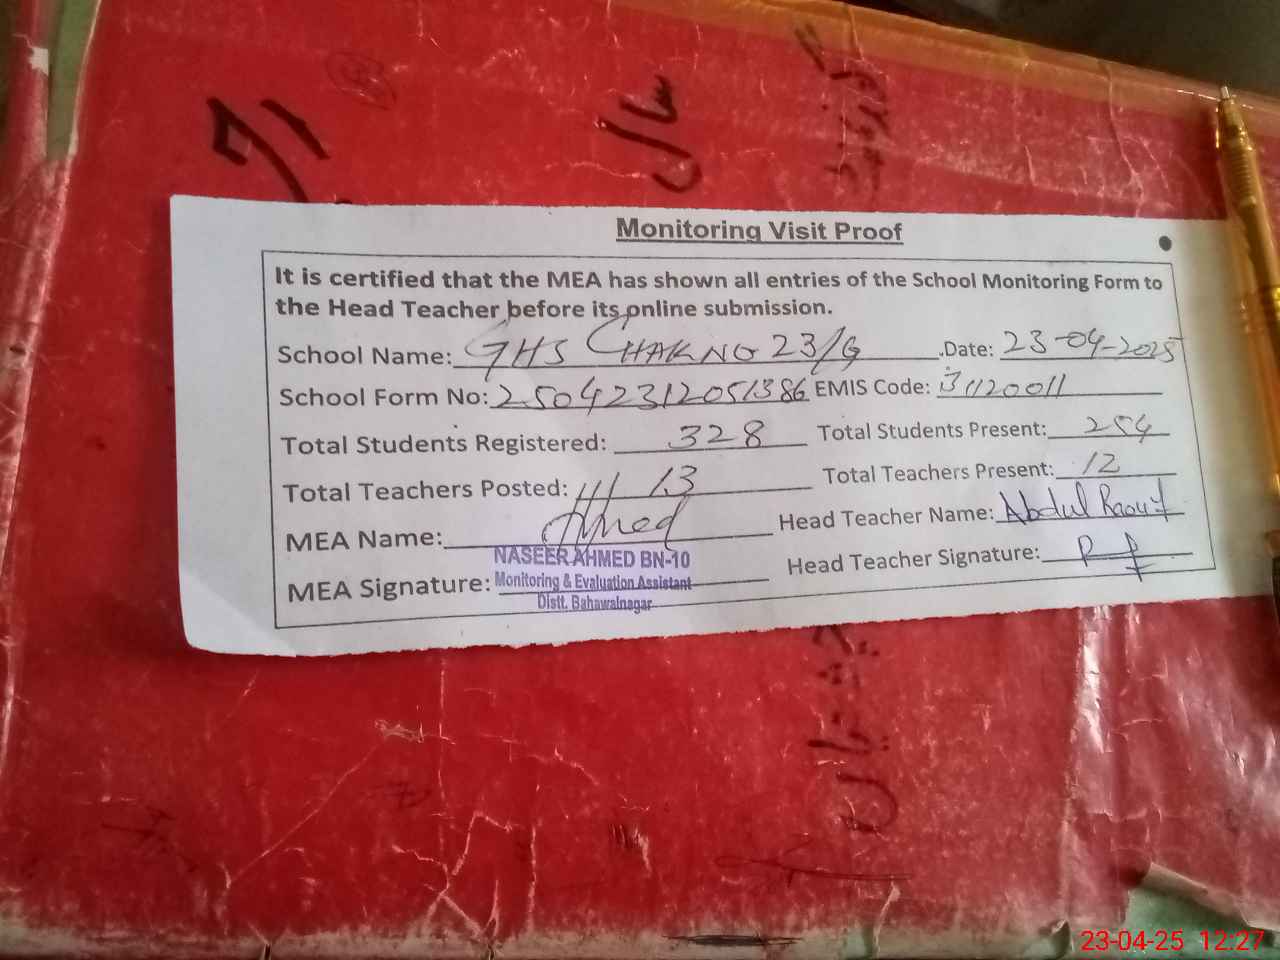 Monitoring Visit Proof
It is certified that the MEA has shown all entries of the School Monitoring Form to
the Head Teacher before its online submission.
School Name: GHS CHAK NO 23/G .Date: 23-04-2025
School Form No: 25042312051386 EMIS Code: 31120011
Total Students Registered: 328 Total Students Present: 254
Total Teachers Posted: 13 Total Teachers Present: 12
MEA Name: Ahmed Head Teacher Name: Abdul Raouf
NASEER AHMED BN-10
MEA Signature: Monitoring & Evaluation Assistant Head Teacher Signature:
Distt. Bahawalnagar
23-04-25 12:27